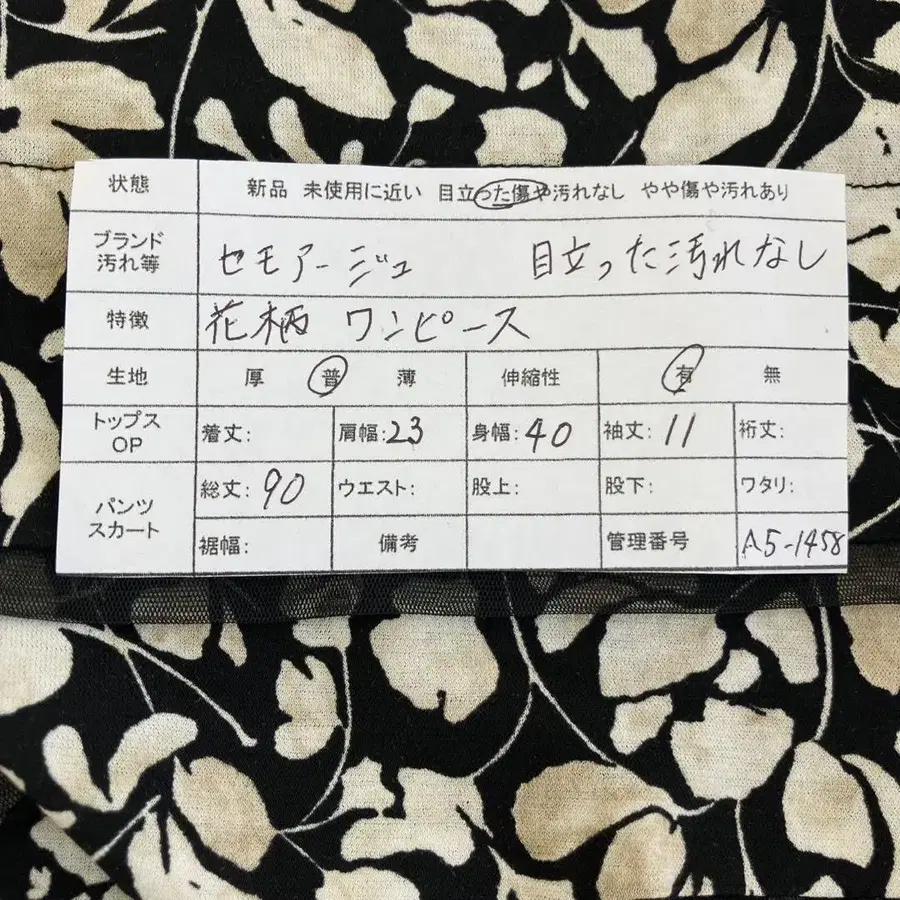 状態 新品 未使用に近い 目立った傷や汚れなし やや傷や汚れあり
ブランド
汚れ等 セモアージュ 目立った汚れなし
特徴 花柄 ワンピース
生地 厚 普 薄 伸縮性 有 無
トップス
OP 着丈: 肩幅:23 身幅:40 袖丈:11 裄丈:
パンツ
スカート 総丈:90 ウエスト: 股上: 股下: ワタリ:
裾幅: 備考 管理番号 A5-1458